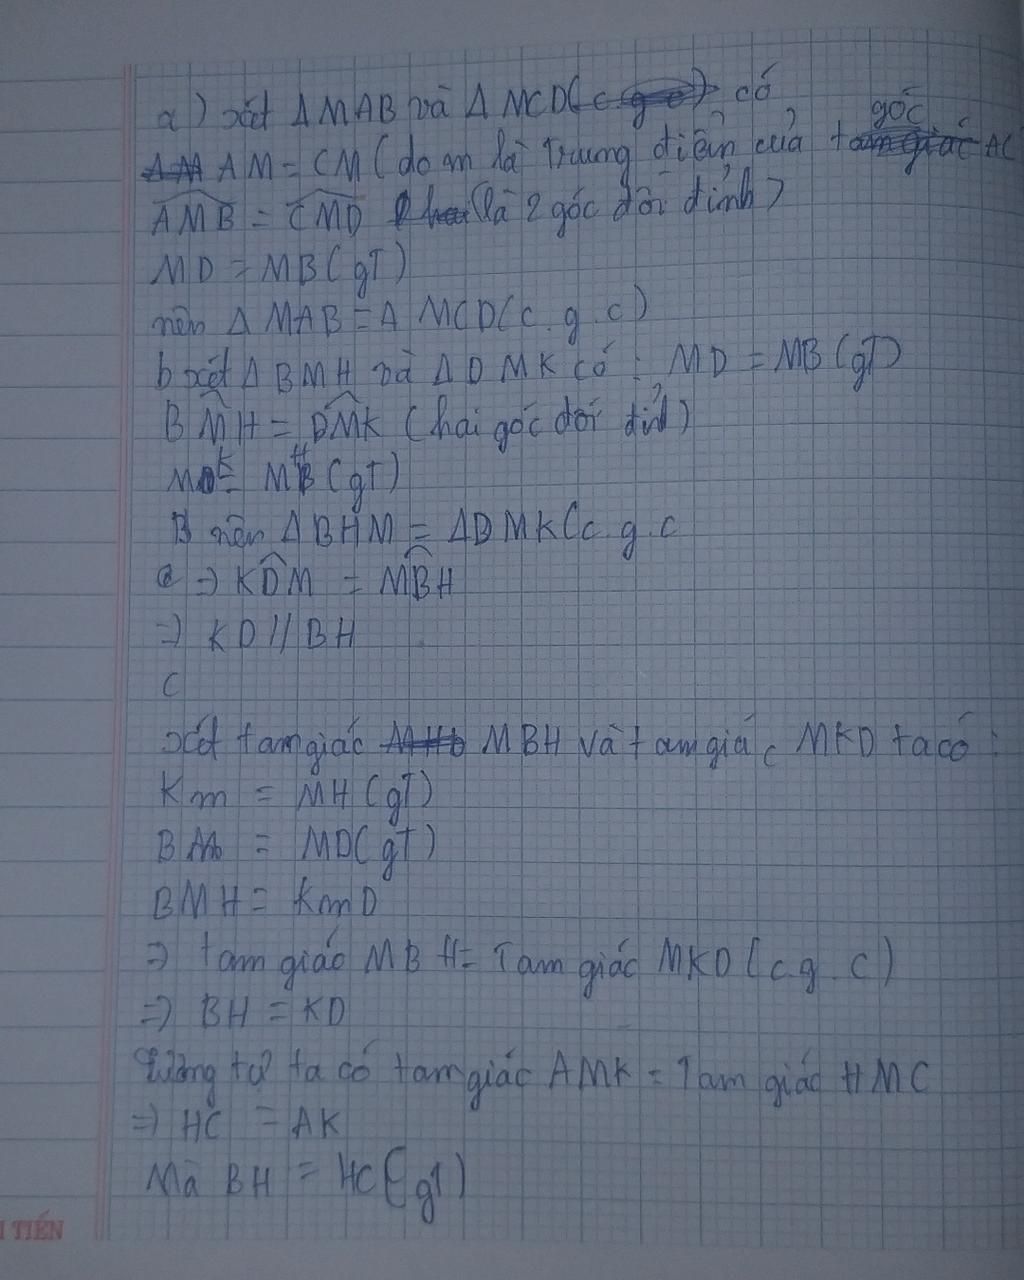 a) xét Δ MAB và Δ MCD(c có
AM = CM (do m là Trung điểm của góc AC
AMB = CMD (là 2 góc đối đỉnh)
MD = MB (gT)
nên Δ MAB = Δ MCD(c.g.c)
b xét Δ BMH và Δ DMK có: MD = MB (gT)
BMH = DMK (hai góc đối đỉnh)
MK = MH (gT)
nên Δ BHM = ΔDMK(c.g.c
=> KDM = MBH
=> KD // BH
C
xét tam giác MBH và tam giác MKD ta có:
Km = MH (gT)
BM = MD(gT)
BMH = KmD
=> tam giác MBH = Tam giác MKD (c.g.c)
=> BH = KD
tương tự ta có tam giác AMK = Tam giác HMC
=> HC = AK
Mà BH = HC (gT)
TIẾN